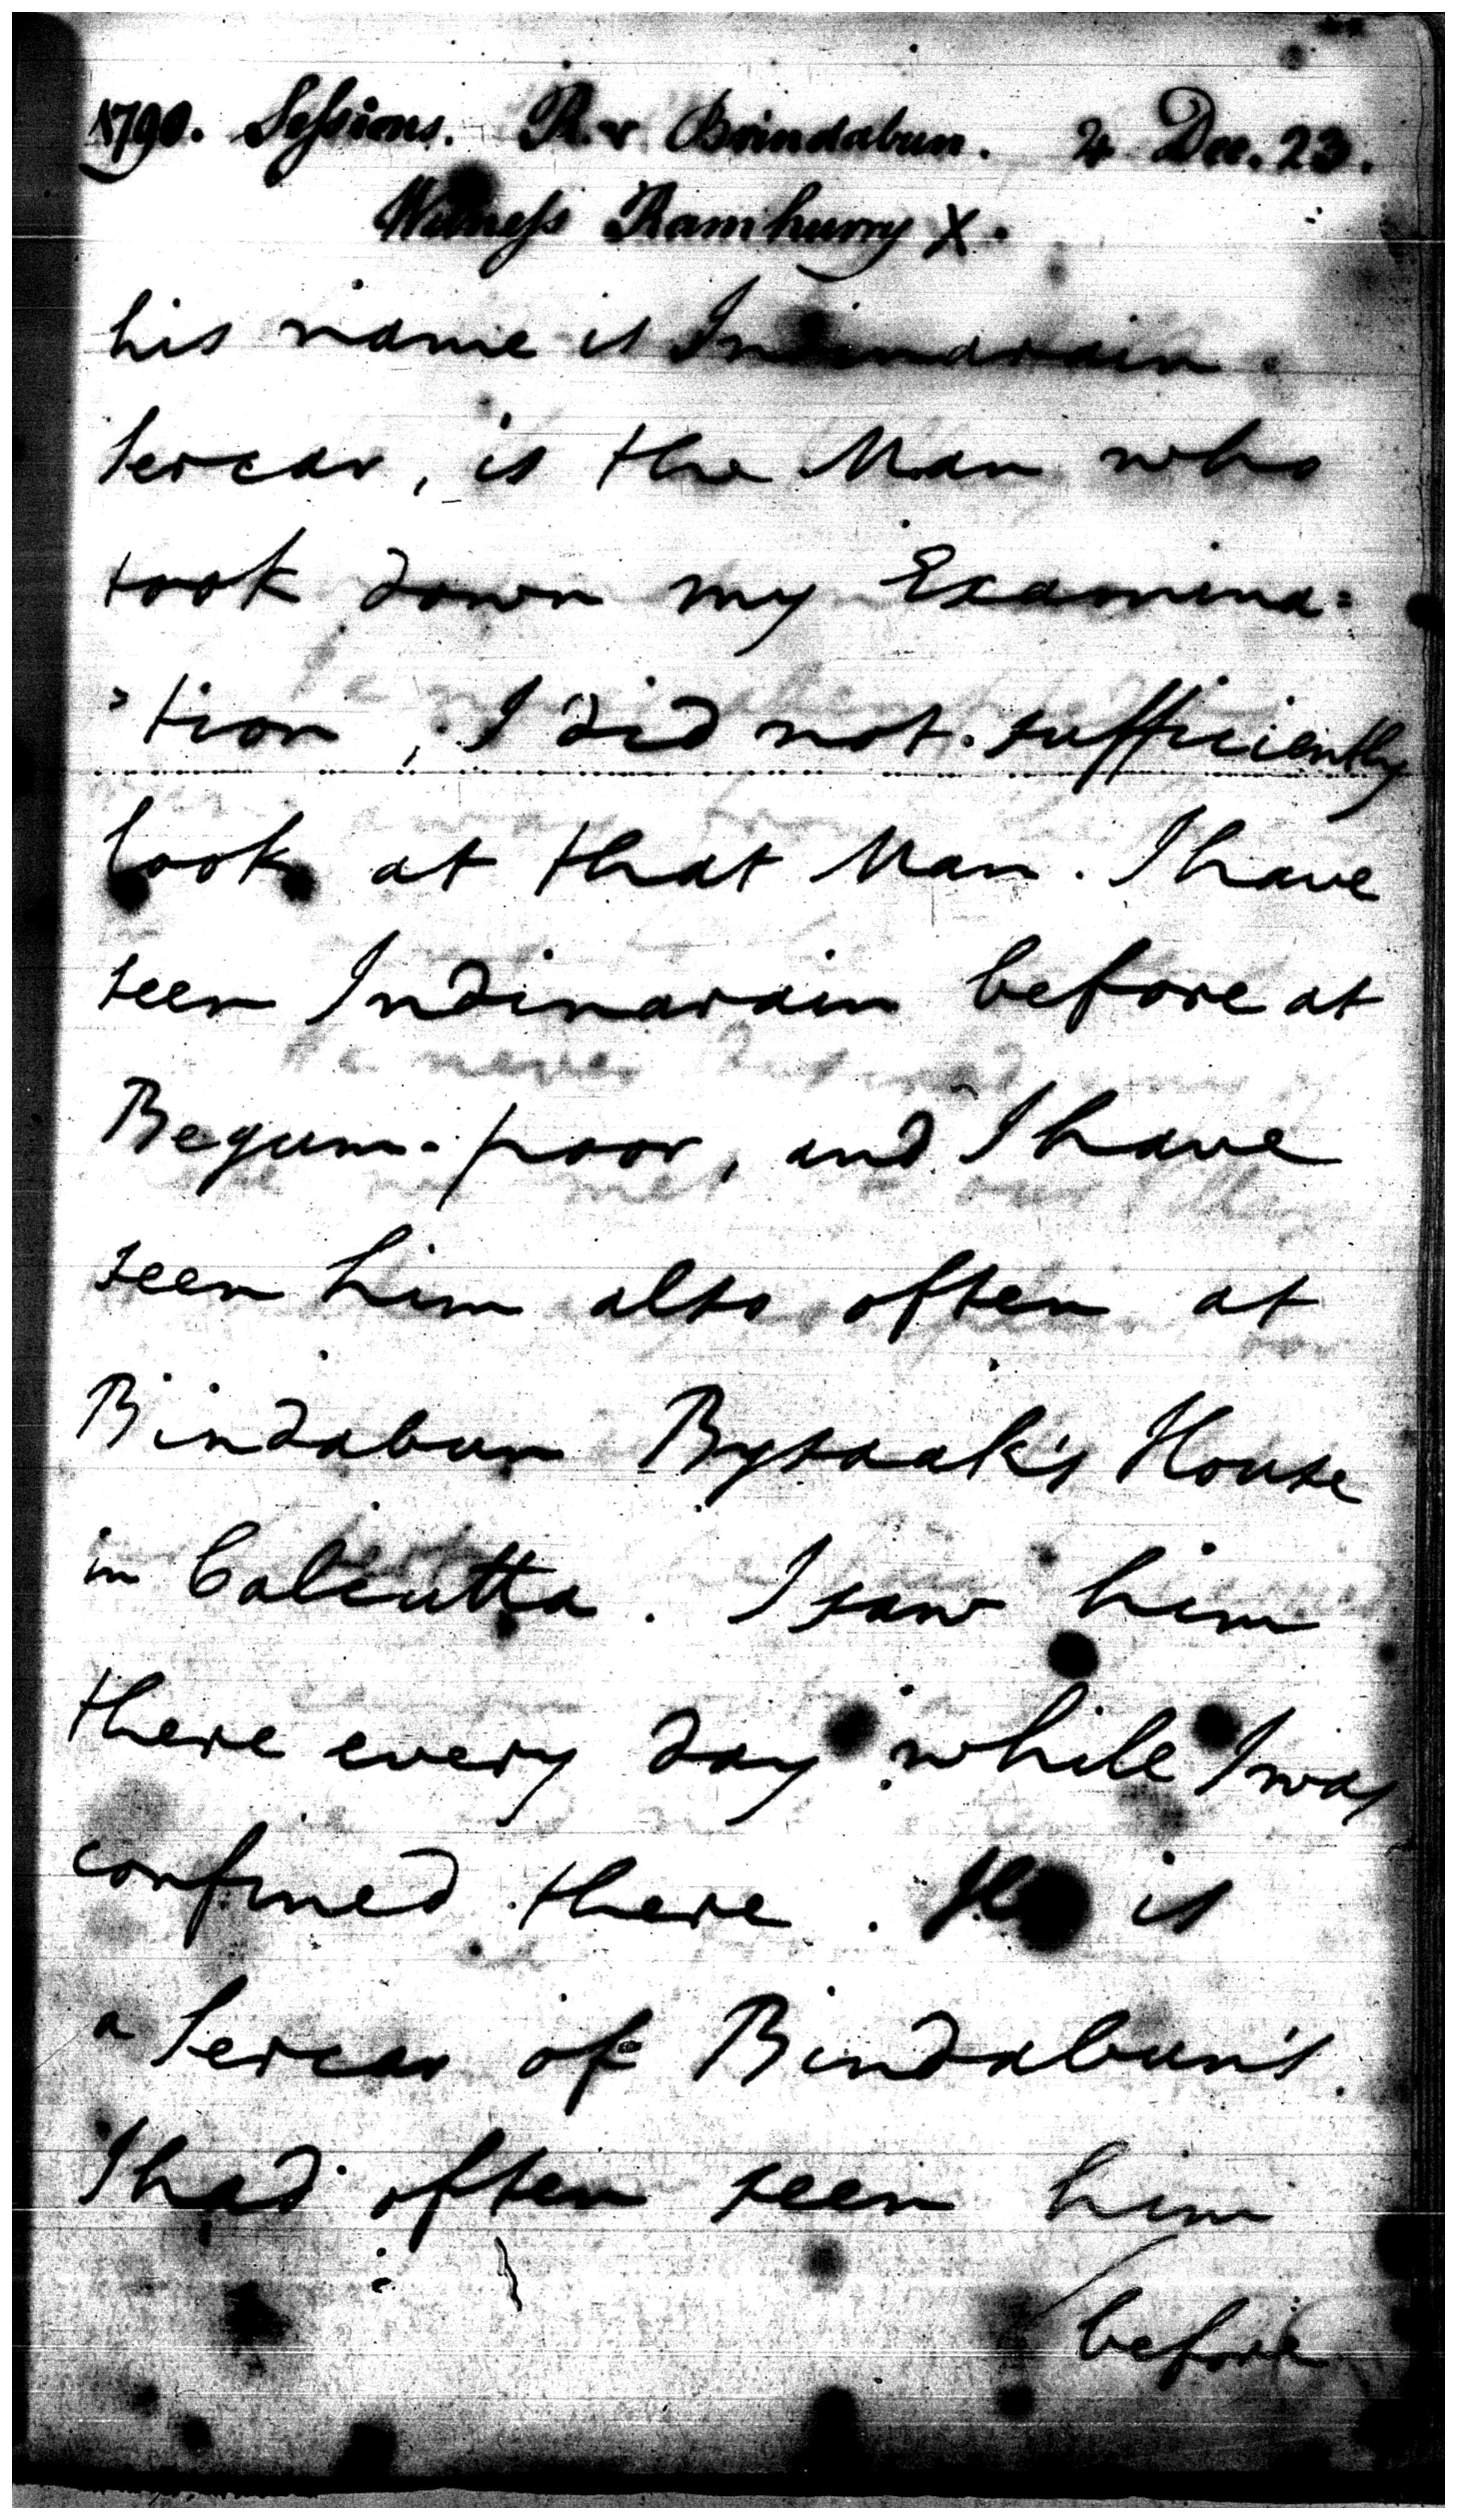 1790. Sessions. R. v Brindabun. 4 Dec. 23.
Witness Ramhurry X.
his name is Indinarain
Sercar, is the Man who
took down my Examina=
=tion, I did not sufficiently
look at that Man. I have
seen Indinarain before at
Begum-poor, and I have
seen him also often at
Bindabun Bysaak's House
in Calcutta. I saw him
there every day while I was
confined there. He is
a Sercar of Bindabun's.
I had often seen him
before